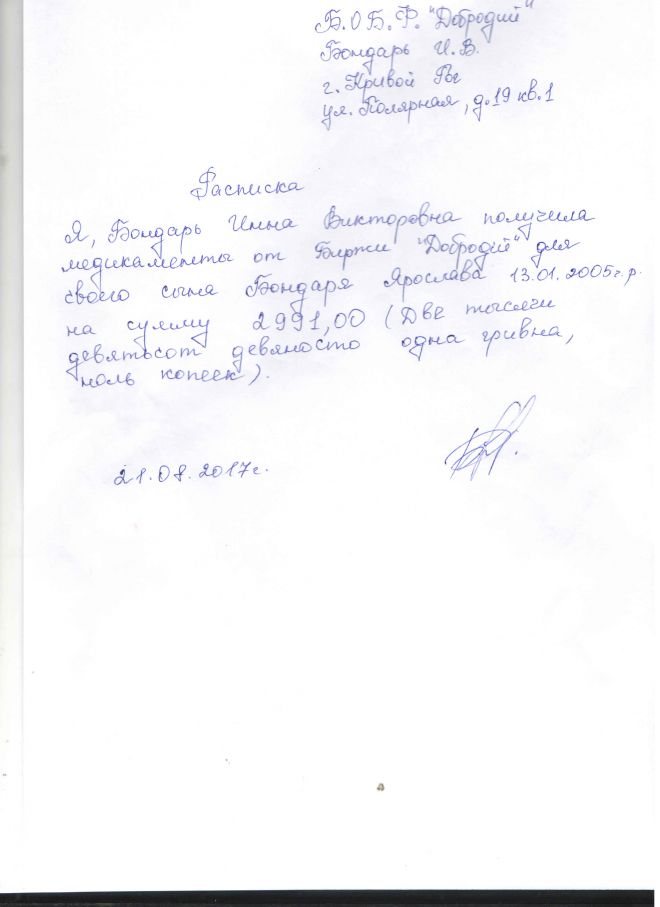 Б.О Б.Ф. "Добродій"
Бондарь И.В.
г. Кривой Рог
ул. Полярная, д.19 кв.1
Расписка
Я, Бондарь Инна Викторовна получила
медикаменты от Биржи "Добродій" для
своего сына Бондаря Ярослава 13.01.2005г.р.
на сумму 2991,00 (Две тысячи
девятьсот девяносто одна гривна,
ноль копеек).
21.08.2017г.